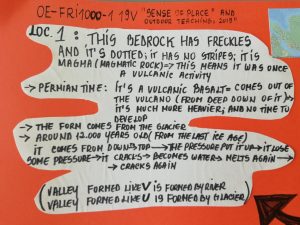 OE-FRI1000-1 19V "SENSE OF PLACE" AND
OUTDOOR TEACHING, 2019"
LOC. 1: THIS BEDROCK HAS FRECKLES
AND IT'S DOTTED; IT HAS NO STRIPES; IT IS
MAGMA (MAGMATIC ROCK) → THIS MEANS IT WAS ONCE
A VULCANIC ACTIVITY
→ PERMIAN TIME: IT'S A VULCANIC BASALT = COMES OUT OF
THE VULCANO (FROM DEEP DOWN OF IT) →
IT'S MUCH MORE HEAVIER, AND NO TIME TO
DEVELOP
→ THE FORM COMES FROM THE GLACIER
→ AROUND 12.000 YEARS OLD (FROM THE LAST ICE AGE)
IT COMES FROM DOWN → TOP → THE PRESSURE PUT IT UP → IT LOSE
SOME PRESSURE → IT CRACKS → BECOMES WATER → MELTS AGAIN →
→ CRACKS AGAIN
(VALLEY FORMED LIKE V IS FORMED BY RIVER
VALLEY FORMED LIKE U IS FORMED BY GLACIER)